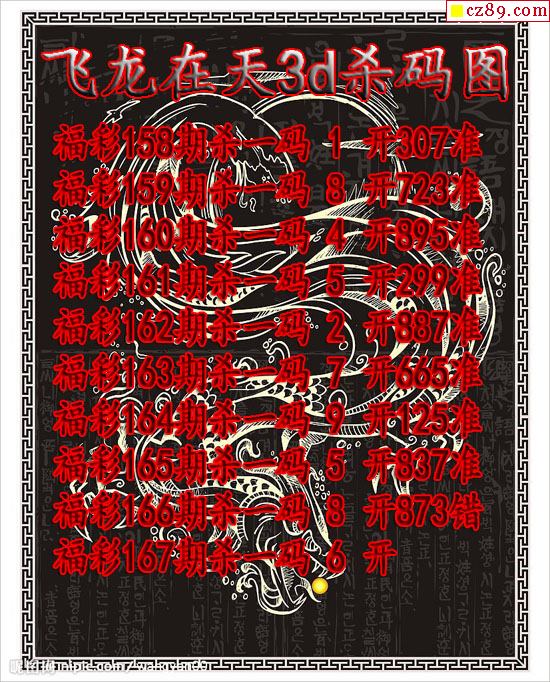 cz89.com
飞龙在天3d杀码图
福彩158期杀一码 1 开307准
福彩159期杀一码 8 开723准
福彩160期杀一码 4 开895准
福彩161期杀一码 5 开299准
福彩162期杀一码 2 开887准
福彩163期杀一码 7 开665准
福彩164期杀一码 9 开125准
福彩165期杀一码 5 开837准
福彩166期杀一码 8 开873错
福彩167期杀一码 6 开